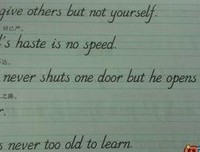 give others but not yourself.
's haste is no speed.
never shuts one door but he opens
never too old to learn